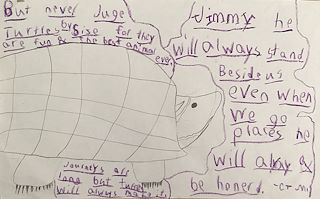 But never Juge
Turtles by Sise for they
are fun & the best animal
ever
Jimmy he
will always stand
Besideus
even when
we go
places he
will alway &
be honerd.
Journeys are
long but turtles
will always make it